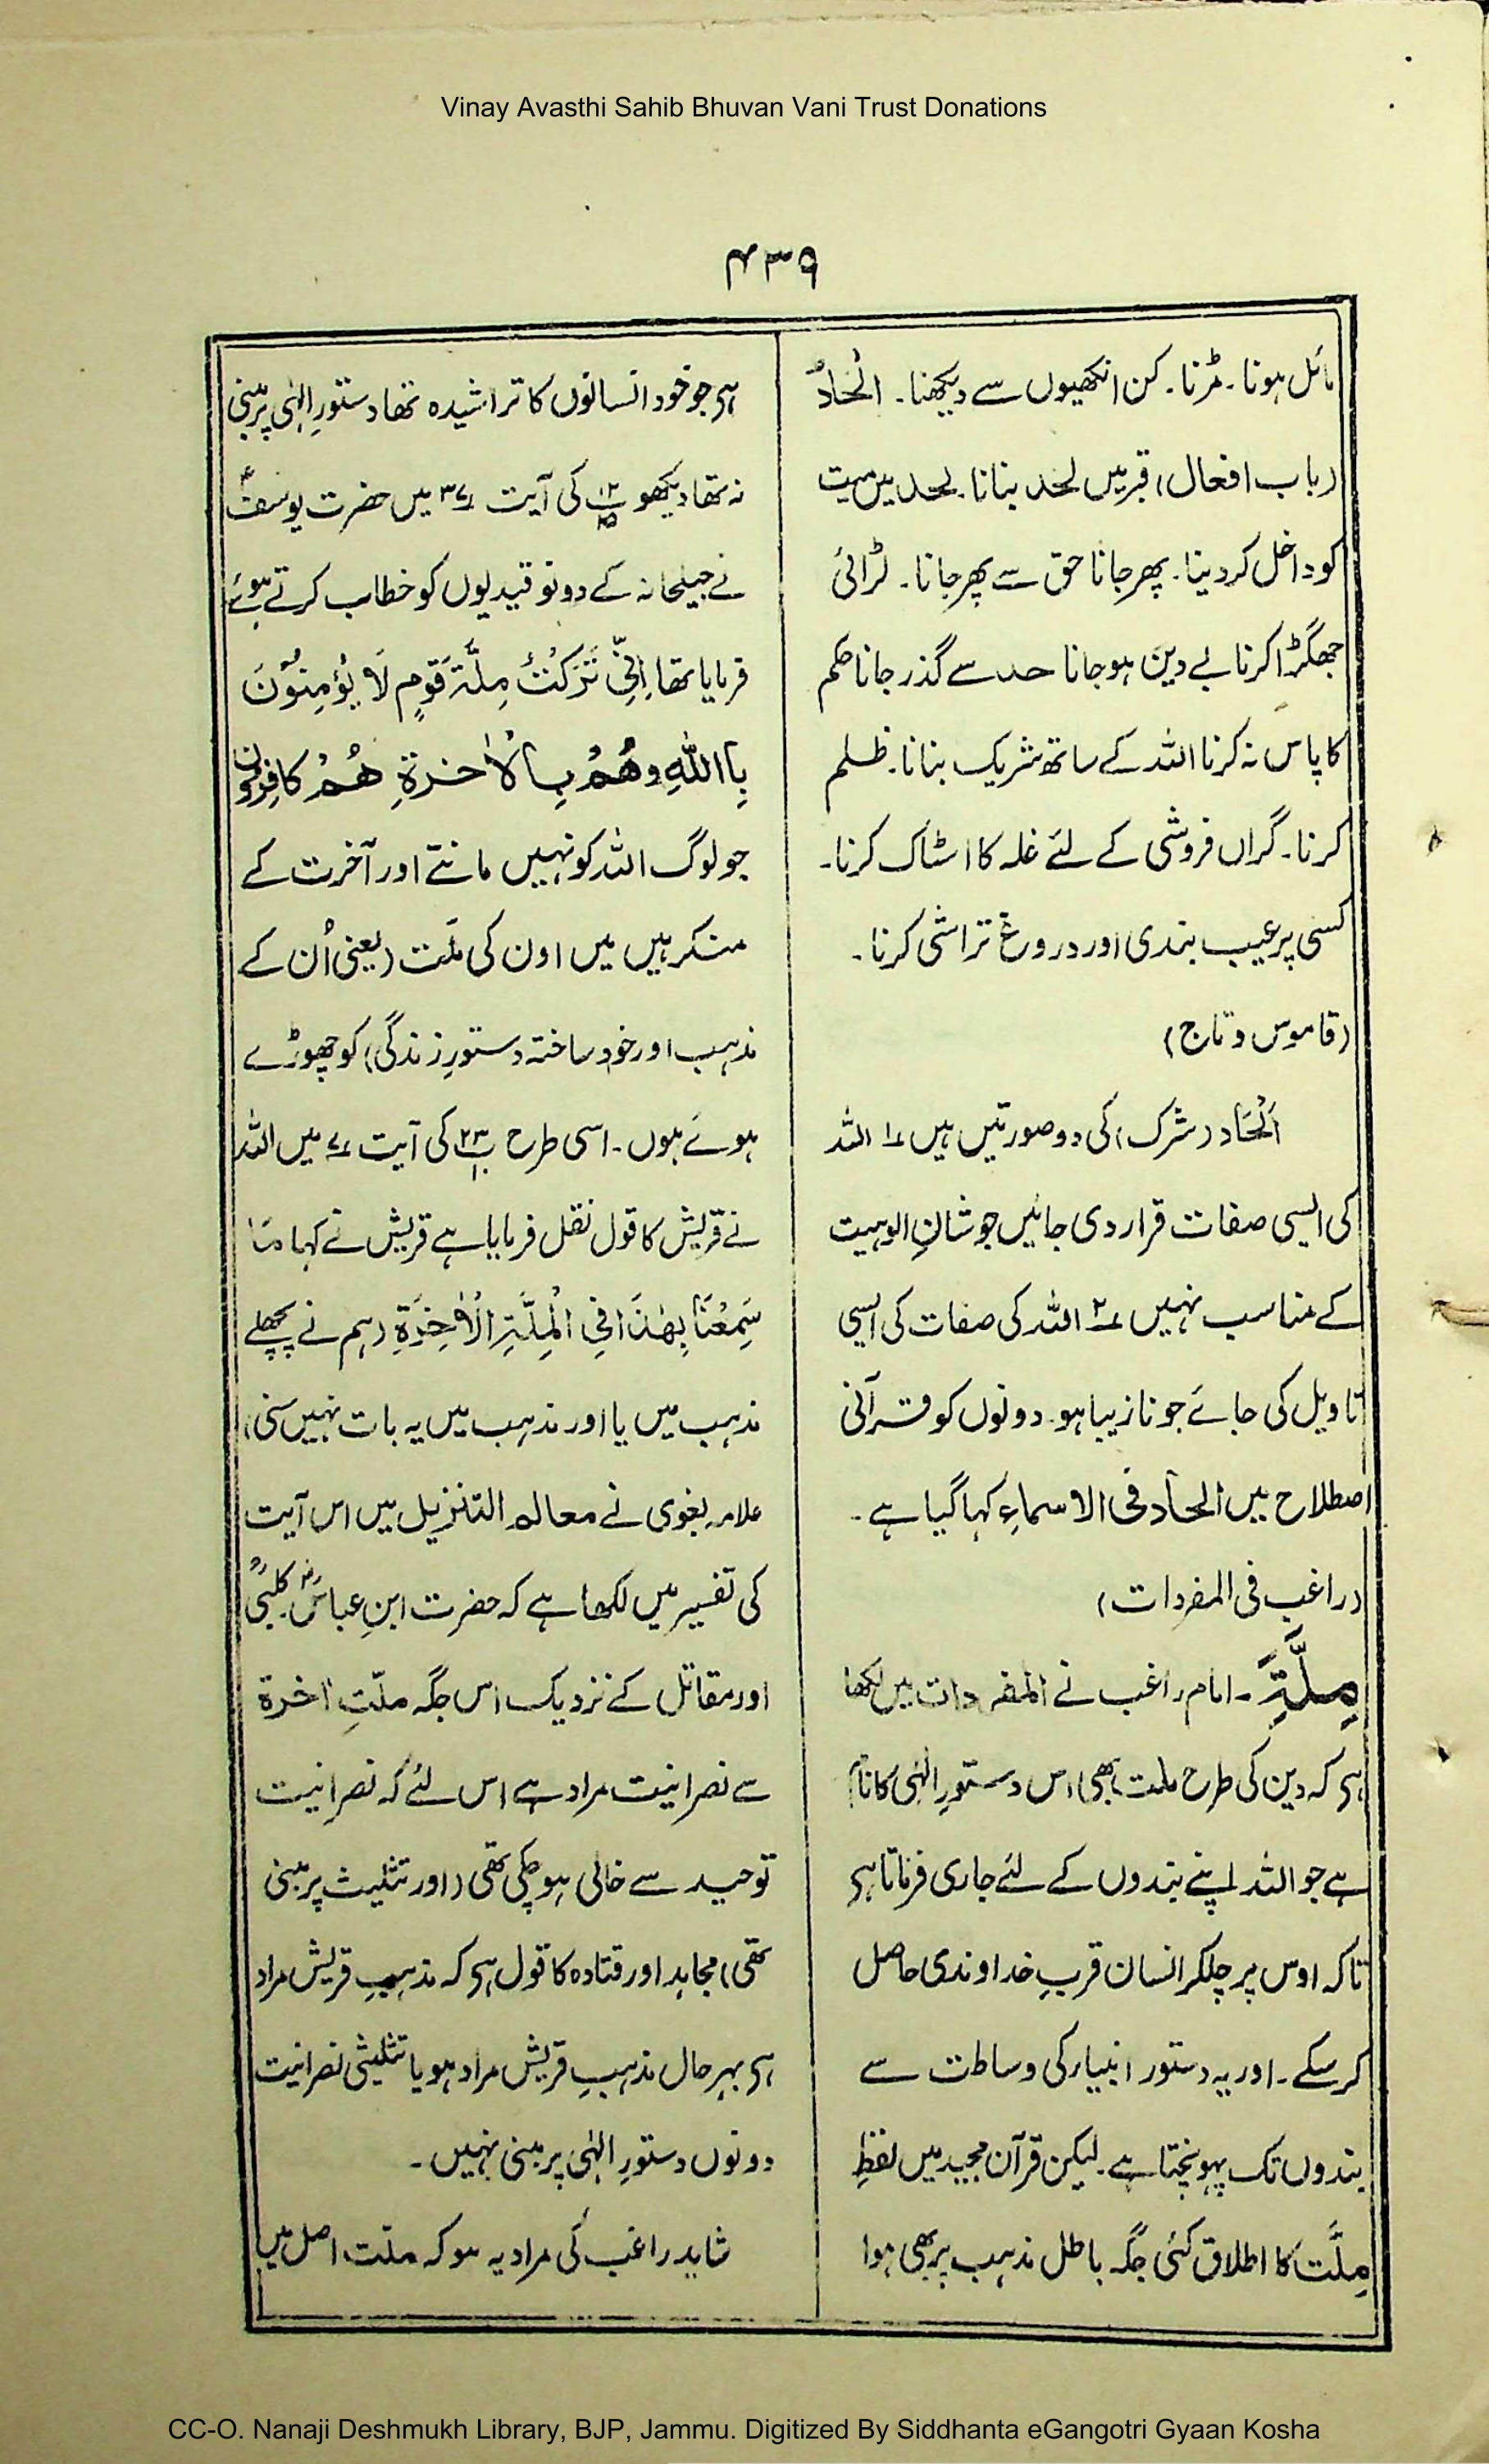 Vinay Avasthi Sahib Bhuvan Vani Trust Donations
مائل ہونا۔ مڑنا۔ کن انکھیوں سے دیکھنا۔ اِلْحَادٌ
(باب افعال) قبر میں لحد بنانا۔ لحد میں میت
کو داخل کردینا۔ پھر جانا حق سے پھر جانا۔ لڑائی
جھگڑا کرنا بے دین ہو جانا حد سے گذر جانا حکم
کا پاس نہ کرنا اللہ کے ساتھ شریک بنانا۔ ظلم
کرنا۔ گراں فروشی کے لئے غلہ کا اسٹاک کرنا۔
کسی پر عیب بندی اور دروغ تراشی کرنا۔
(قاموس و تاج)
اَلْحَاد (شرک) کی دو صورتیں ہیں ۱؎ اللہ
کی ایسی صفات قرار دی جائیں جو شانِ الوہیت
کے مناسب نہیں ۲؎ اللہ کی صفات کی ایسی
تاویل کی جائے جو نازیبا ہو۔ دونوں کو قرآنی
اصطلاح میں الحاد فی الاسماءِ کہا گیا ہے۔
(راغب فی المفردات)
مِلَّۃَ۔ امام راغب نے المفردات میں لکھا
ہی کہ دین کی طرح ملت بھی اس دستورِ الٰہی کا نام
ہے جو اللہ اپنے بندوں کے لئے جاری فرماتا ہی
تاکہ اوس پر چلکر انسان قربِ خداوندی حاصل
کرسکے۔ اور یہ دستور انبیار کی وساطت سے
بندوں تک پہونچتا ہے۔ لیکن قرآن مجید میں لفظِ
مِلَّت کا اطلاق کئی جگہ باطل مذہب پر بھی ہوا
ہی جو خود انسانوں کا تراشیدہ تھا دستورِ الٰہی پر مبنی
نہ تھا دیکھو پ۱۲ ع۱۵ کی آیت ۳۷؎ میں حضرت یوسفؑ
نے جیلخانہ کے دونو قیدیوں کو خطاب کرتے ہوئے
فرمایا تھا اِنِّیْ تَرَکْتُ مِلَّۃَ قَوْمٍ لَا یُؤْمِنُوْنَ
بِااللّٰہِ وَھُمْ بِالْاٰخِرَۃِ ھُمْ کَافِرُوْنَ
جو لوگ اللہ کو نہیں مانتے اور آخرت کے
منکر ہیں میں اون کی ملّت (یعنی اُن کے
مذہب اور خود ساختہ دستورِ زندگی) کو چھوڑے
ہوئے ہوں۔ اسی طرح پ۲۳ ع۱۰ کی آیت ۷؎ میں اللہ
نے قریش کا قول نقل فرمایا ہے قریش نے کہا مَا
سَمِعْنَا بِھٰذَا فِی الْمِلَّۃِ الْاٰخِرَۃِ (ہم نے پچھلے
مذہب میں یا اور مذہب میں یہ بات نہیں سنی)
علامہ بغوی نے معالم التنزیل میں اس آیت
کی تفسیر میں لکھا ہے کہ حضرت ابنِ عباسؓ۔ کلبیؒ
اور مقاتل کے نزدیک اس جگہ ملّتِ اٰخرۃ
سے نصرانیت مراد ہے اس لئے کہ نصرانیت
توحید سے خالی ہو چکی تھی (اور تثلیث پر مبنی
تھی) مجاہد اور قتادہ کا قول ہی کہ مذہبِ قریش مراد
ہی بہرحال مذہبِ قریش مراد ہو یا تثلیثی نصرانیت
دونوں دستورِ الٰہی پر مبنی نہیں۔
شاید راغب کی مراد یہ ہو کہ ملّت اصل میں
CC-O. Nanaji Deshmukh Library, BJP, Jammu. Digitized By Siddhanta eGangotri Gyaan Kosha